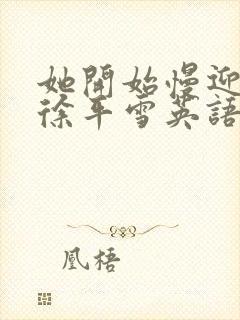 她開始慢迎
徐平雪英語
凰梧